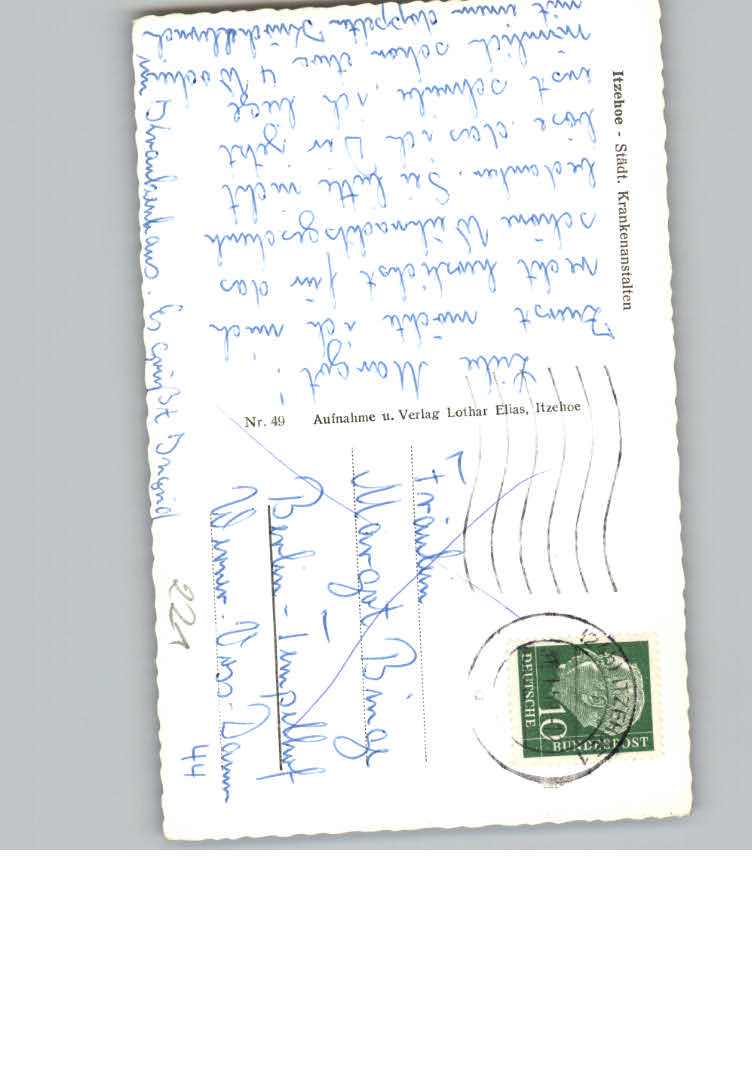 Liebe Margot!
Zuerst möchte ich mich
recht herzlichst für das
schöne Weihnachtsgeschenk
bedanken. Sei bitte nicht
böse das ich Dir jetzt
erst schreibe, ich liege
nämlich schon über 4 Wochen
mit einem doppelten Knöchelbruch
im Krankenhaus. Es grüßt Ingrid
Itzehoe - Städt. Krankenanstalten
Nr. 49 Aufnahme u. Verlag Lothar Elias, Itzehoe
Fräulein
Margot Binge
Berlin - Tempelhof
Werner-Voss-Damm
44
221
DEUTSCHE
BUNDESPOST
10
ITZEHOE